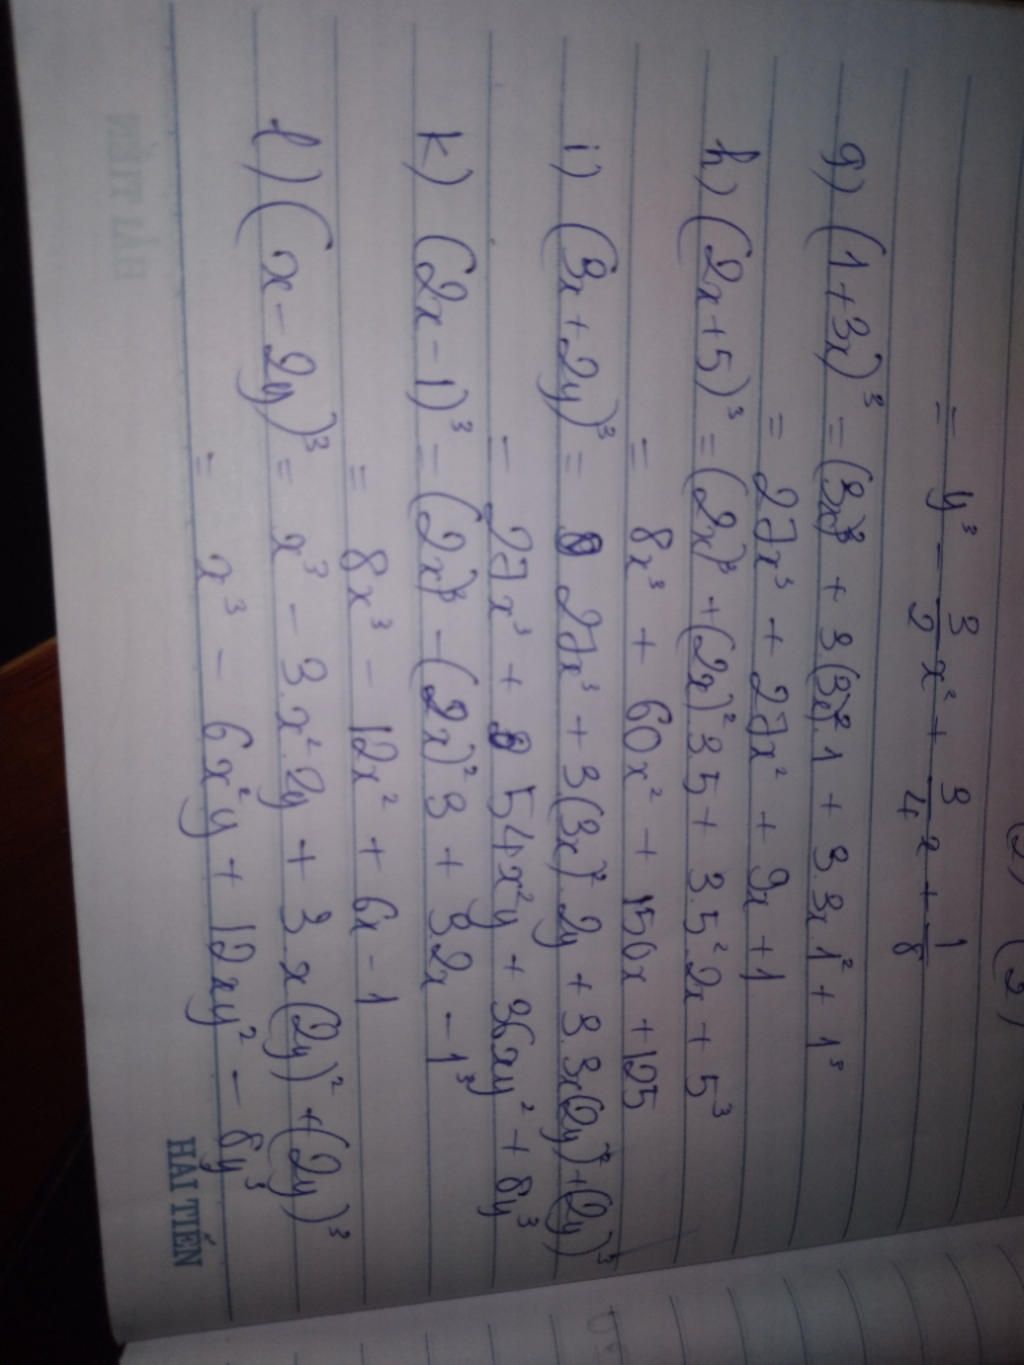 = y³ - 3/2 x² + 3/4 x + 1/8
g) (1+3x)³ = (3x)³ + 3(3x)².1 + 3.3x1² + 1³
= 27x³ + 27x² + 9x + 1
h) (2x+5)³ = (2x)³ + (2x)².3.5 + 3.5².2x + 5³
= 8x³ + 60x² + 150x + 125
i) (3x+2y)³ = 27x³ + 3(3x)².2y + 3.3x(2y)² + (2y)³
= 27x³ + 54x²y + 36xy² + 8y³
k) (2x-1)³ = (2x)³ - (2x)²3 + 3.2x - 1³
= 8x³ - 12x² + 6x - 1
l) (x-2y)³ = x³ - 3.x².2y + 3.x(2y)² + (2y)³
= x³ - 6x²y + 12xy² - 8y³
HẢI TIẾN